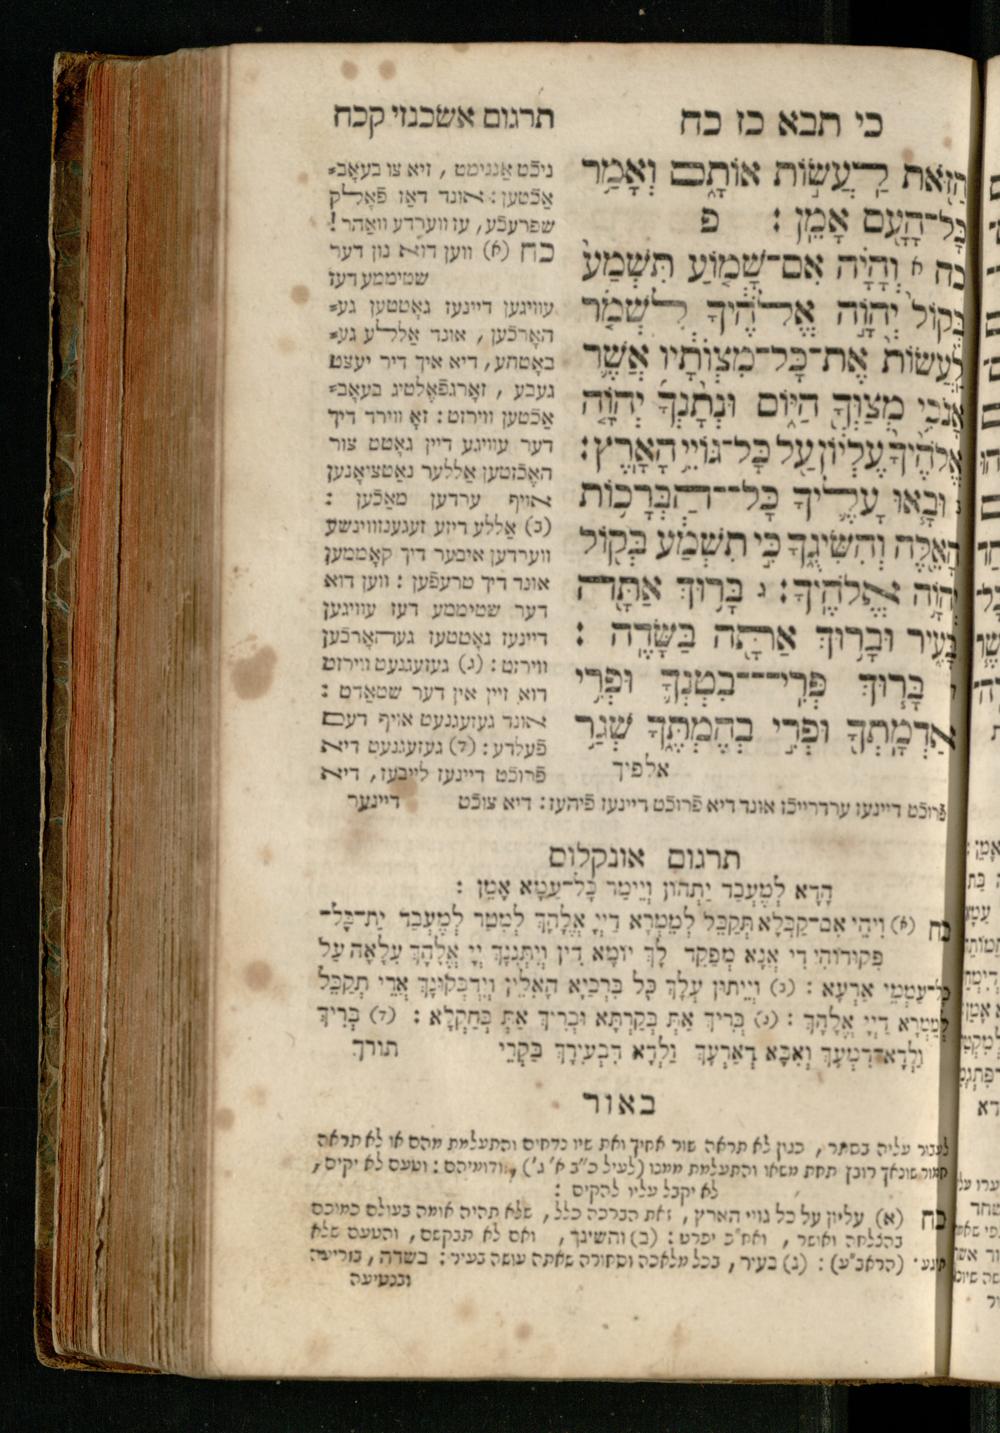 כי תבא כז כח
תרגום אשכנזי קכח
הַזֹּאת לַעֲשׂוֹת אוֹתָם וְאָמַר
כָּל־הָעָם אָמֵן׃ פ
כח א וְהָיָה אִם־שָׁמוֹעַ תִּשְׁמַע
בְּקוֹל יְהוָֹה אֱלֹהֶיךָ לִשְׁמֹר
לַעֲשׂוֹת אֶת־כָּל־מִצְוֹתָיו אֲשֶׁר
אָנֹכִי מְצַוְּךָ הַיּוֹם וּנְתָנְךָ יְהוָֹה
אֱלֹהֶיךָ עֶלְיוֹן עַל כָּל־גּוֹיֵי הָאָרֶץ׃
וּבָאוּ עָלֶיךָ כָּל־הַבְּרָכוֹת
הָאֵלֶּה וְהִשִּׂיגֻךָ כִּי תִשְׁמַע בְּקוֹל
יְהוָֹה אֱלֹהֶיךָ׃ ג בָּרוּךְ אַתָּה
בָּעִיר וּבָרוּךְ אַתָּה בַּשָּׂדֶה׃
ד בָּרוּךְ פְּרִי־בִטְנְךָ וּפְרִי
אַדְמָתְךָ וּפְרִי בְהֶמְתֶּךָ שְׁגַר
אלפיך
ניכֿט אַננימט, זיא צו בעאָב⸗
אַכֿטען: אונד דאַז פֿאָלק
שפרעכֿע, עז ווערדע וואַהר!
כח (א) ווען דוא נון דער
שטיממע דעז
עוויגען דיינעז גאָטטען גע⸗
האָרכֿען, אונד אַללע גע⸗
באָטהע, דיא איך דיר יעצט
געבע, זאָרגפֿאָלטיג בעאָב⸗
אַכֿטען ווירזט: זאָ ווירד דיך
דער עוויגע דיין גאָטט צור
האָכֿזטען אַללער נאַטציאָנען
אויף ערדען מאַכֿען:
(ב) אַללע דיזע זעגענזווינשע
ווערדען איבער דיך קאָממען
אונד דיך טרעפֿען: ווען דוא
דער שטיממע דעז עוויגען
דיינעז גאָטטעז געהאָרכֿען
ווירזט: (ג) געזעגנעט ווירזט
דוא זיין אין דער שטאַדט:
אונד געזעגנעט אויף דעם
פֿעלדע: (ד) געזעגנעט דיא
פֿרוכֿט דיינעז לייבעז, דיא
פֿרוכֿט דיינעז ערדרייכֿז אונד דיא פֿרוכֿט דיינעז פֿיהעז: דיא צוכֿט דיינער
תרגום אונקלוס
הָדָא לְמֶעְבַּד יַתְהוֹן וְיֵימַר כָּל־עַמָּא אָמֵן׃
כח (א) וִיהֵי אִם־קַבָּלָא תְּקַבֵּל לְמֵימְרָא דַיְיָ אֱלָהָךְ לְמִטַּר לְמֶעְבַּד יַת־כָּל־
פִּקּוּדוֹהִי דִי אֲנָא מְפַקֵּד לָךְ יוֹמָא דֵין וְיִתְּנִנָּךְ יְיָ אֱלָהָךְ עִלָּאָה עַל
כָּל־עַמְמֵי אַרְעָא׃ (ב) וְיֵיתוּן עֲלָךְ כָּל בִּרְכַיָּא הָאִלֵּין וְיַדְבְּקוּנָּךְ אֲרֵי תְקַבֵּל
לְמֵימְרָא דַיְיָ אֱלָהָךְ׃ (ג) בְּרִיךְ אַתְּ בְּקַרְתָּא וּבְרִיךְ אַתְּ בְּחַקְלָא׃ (ד) בְּרִיךְ
וַלְדָּא־דִמְעָךְ וְאִבָּא דְאַרְעָךְ וַלְדָּא דִבְעִירָךְ בַּקְרֵי תורך
באור
לעבור עליה בסתר, כגון לא תראה שור אחיך ואת שיו נדחים והתעלמת מהם או לא תראה
חמור שונאך רובץ תחת משאו והתעלמת ממנו (לעיל כ״ב א׳ ג׳), ודומיהם: וטעם לא יקים,
לא יקבל עליו להקים:
כח (א) עליון על כל גויי הארץ, זאת הברכה כלל, שלא תהיה אומה בעולם כמוכם
בהצלחה ואושר, ואח״כ יפרט: (ב) והשיגך, ואם לא תבקשם, והטעם שלא
תיגע. (הראב״ע): (ג) בעיר, בכל מלאכה וסחורה שאתה עושה בעיר: בשדה, בזריעה
ובנטיעה